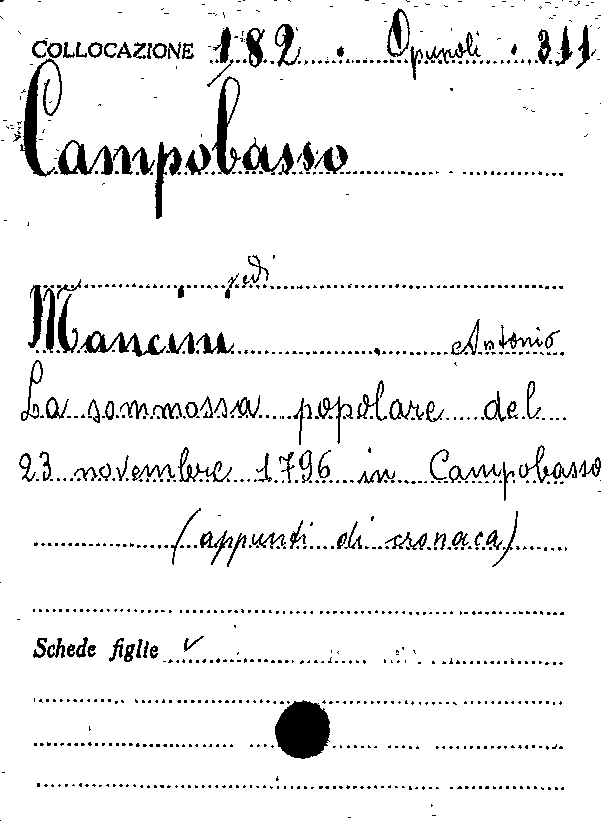 COLLOCAZIONE 182. Opuscoli. 311
Campobasso
vedi
Mancini Antonio
La sommossa popolare del
23 novembre 1796 in Campobasso
(appunti di cronaca)
Schede figlie ✓